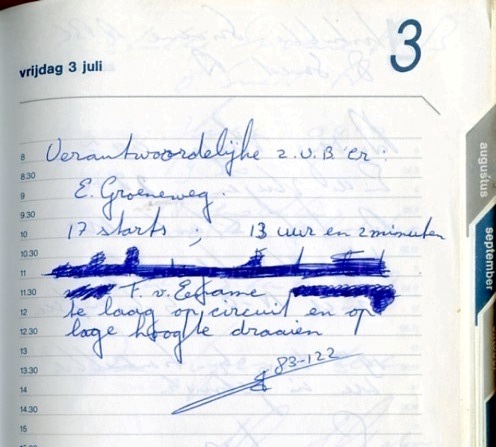 3
vrijdag 3 juli
8 Verantwoordelijke z.v.B.'er:
8.30
9 E. Groeneweg.
9.30
10 17 starts ; 13 uur en 2 minuten
10.30
11
11.30 F. v.
12 te laag op circuit en op
12.30 lage hoogte draaien
13
13.30 83-122
14
14.30
15
augustus
september